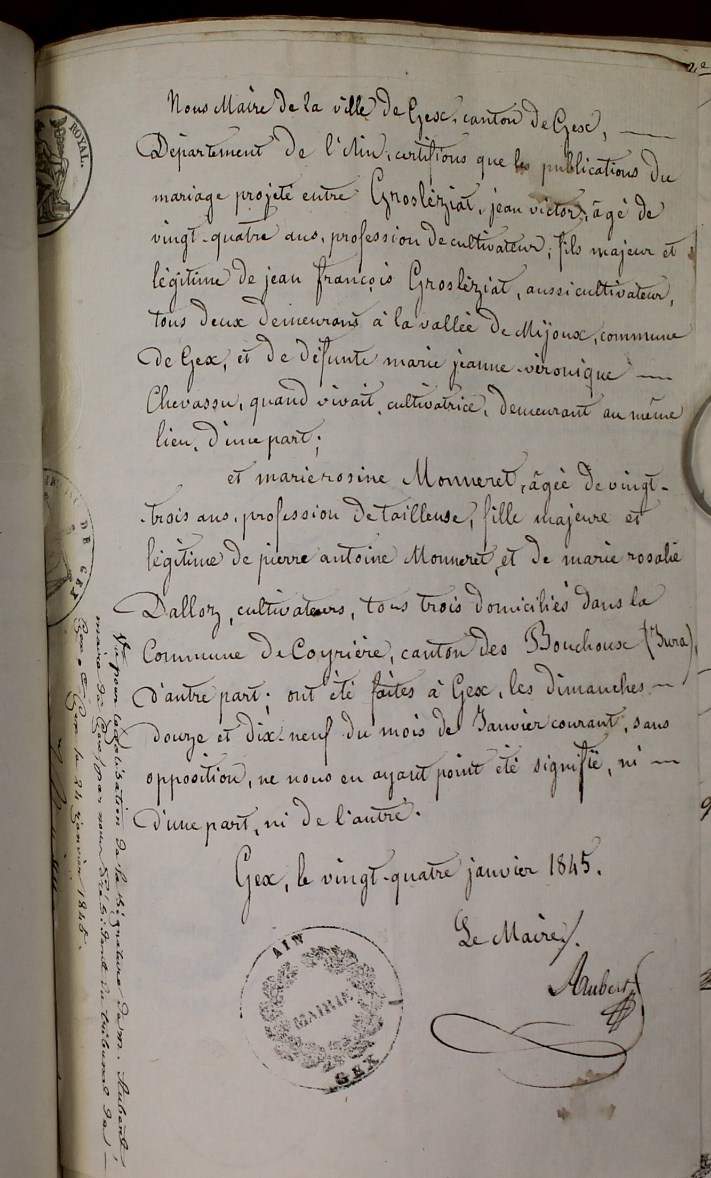 2e
ROYAL.
Nous Maire de la ville de Gex, canton de Gex,
Département de l'Ain, certifions que les publications du
mariage projeté entre Grosléziat, jean victor, âgé de
vingt-quatre ans, profession de cultivateur, fils majeur et
légitime de jean françois Grosléziat, aussi cultivateur,
tous deux demeurans à la vallée de Mijoux, commune
de Gex, et de défunte marie jeanne véronique
Chevassu, quand vivait, cultivatrice, demeurant au même
lieu, d'une part;
et marie rosine Monneret, âgée de vingt-
-trois ans, profession de tailleuse, fille majeure et
légitime de pierre antoine Monneret, et de marie rosalie
Dalloz, cultivateurs, tous trois domiciliés dans la
Commune de Coyrière, canton des Bouchoux (Jura),
d'autre part; ont été faites à Gex, les dimanches
douze et dix-neuf du mois de Janvier courant, sans
opposition, ne nous en ayant point été signifié, ni
d'une part, ni de l'autre.
Gex, le vingt-quatre janvier 1845.
Le Maire,
Aubert
AIN
MAIRIE
GEX
DE GEX
Vu pour légalisation de la signature de M. Aubert
maire de Gex, par nous Président du tribunal de
Gex, Gex le 24 Janvier 1845.